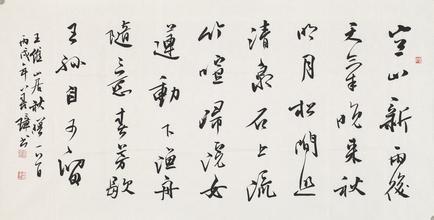 空山新雨後
天氣晚來秋
明月松間照
清泉石上流
竹喧歸浣女
蓮動下漁舟
隨意春芳歇
王孫自可留
王維山居秋暝一首
丙戌年書